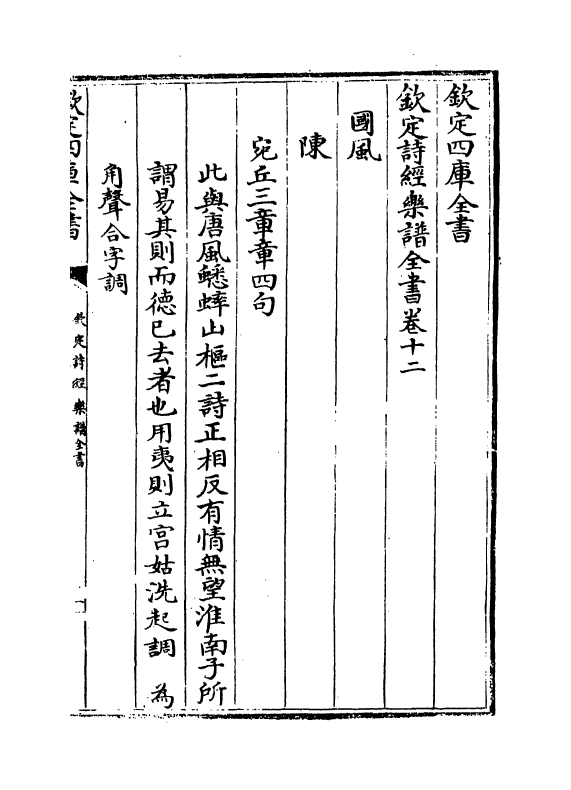 欽定四庫全書
欽定詩經樂譜全書卷十二
國風
陳
宛丘三章章四句
此與唐風蟋蟀山樞二詩正相反有情無望淮南子所
謂易其則而德已去者也用夷則立宫姑洗起調 為
角聲合字調
欽定四庫全書
欽定詩經樂譜全書
一